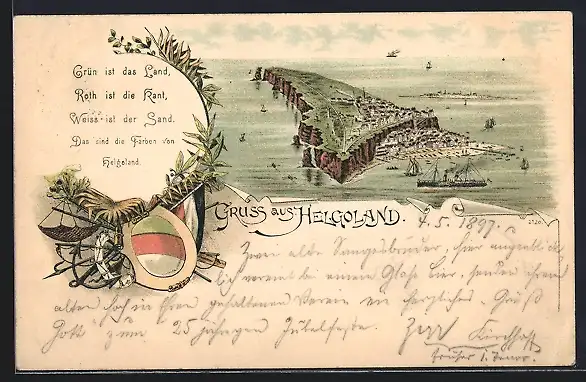 Grün ist das Land,
Roth ist die Kant,
Weiss ist der Sand.
Das sind die Farben von
Helgoland.
GRUSS aus HELGOLAND.
4. 5. 1897.
Zwei alte Sangesbrüder, hier augenblick
lich vereint bei einem Glase Bier, senden ihrem
alten hoch in Ehren gehaltenen Verein ein herzliches Grüß
Gott zum 25 jährigen Jubelfeste.
Kirchhoff
früher I. Tenor.